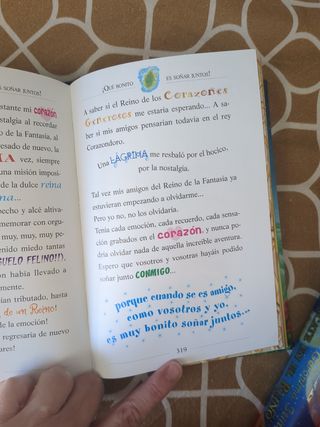 stante mi corazón
nostalgia al recordar
o de la Fantasía, al
esado de nuevo, la
MA vez, siempre
una misión imposi-
de la dulce reina
na...
echo y alcé altiva-
memorar con orgu-
muy, muy, muy pe-
enido miedo tantas
GUELO FELINO!!).
ón había llevado a
mente.
ían tributado, hasta
o de un Reino!
de la emoción!
regresaría de nuevo
ares!
¡QUÉ BONITO ES SOÑAR JUNTOS!
A saber si el Reino de los CORAZONES
GENEROSOS me estaría esperando... A sa-
ber si mis amigos pensarían todavía en el rey
Corazondoro.
Una LÁGRIMA me resbaló por el hocico,
por la nostalgia.
Tal vez mis amigos del Reino de la Fantasía ya
estuvieran empezando a olvidarme...
Pero yo no, no los olvidaría.
Tenía cada emoción, cada recuerdo, cada sensa-
ción grabados en el corazón, y nunca po-
dría olvidar nada de aquella increíble aventura.
Espero que vosotros y vosotras hayáis podido
soñar junto CONMIGO...
porque cuando se es amigo,
como vosotros y yo,
es muy bonito soñar juntos...
319